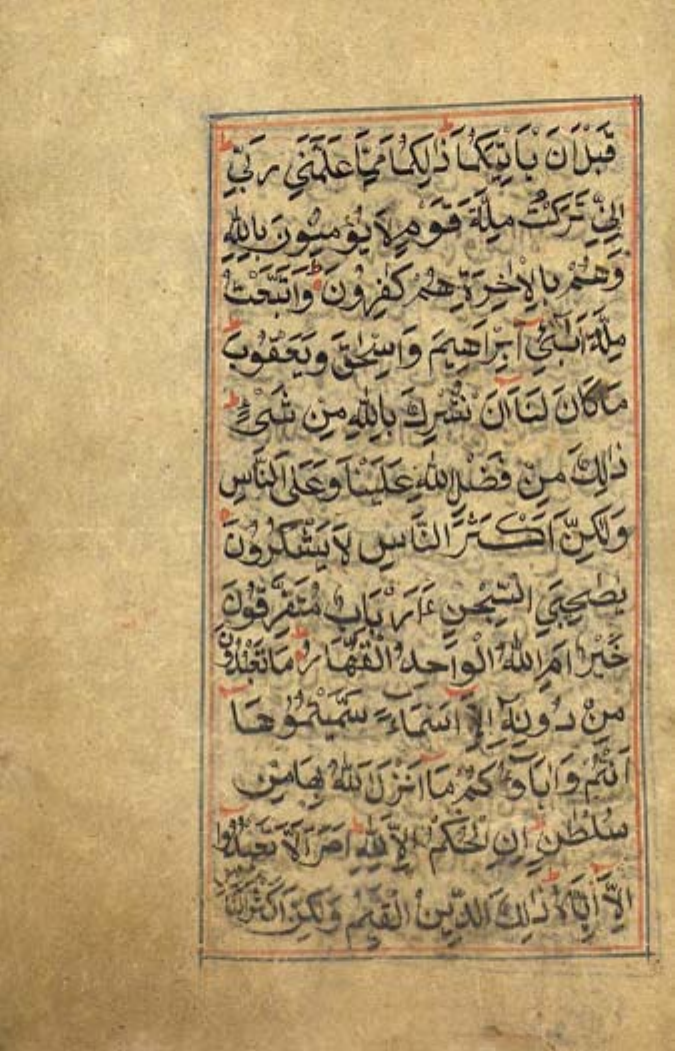 قَبْلَ اَنْ يَاْتِيَكُمَا ذٰلِكُمَا مِمَّا عَلَّمَنِي رَبِّي
اِنِّي تَرَكْتُ مِلَّةَ قَوْمٍ لَا يُؤْمِنُونَ بِاللّٰهِ
وَهُمْ بِالْاٰخِرَةِ هُمْ كٰفِرُونَ وَاتَّبَعْتُ
مِلَّةَ اٰبَآئِي اِبْرَاهِيمَ وَاِسْحٰقَ وَيَعْقُوبَ
مَا كَانَ لَنَا اَنْ نُشْرِكَ بِاللّٰهِ مِنْ شَيْءٍ
ذٰلِكَ مِنْ فَضْلِ اللّٰهِ عَلَيْنَا وَعَلَى النَّاسِ
وَلٰكِنَّ اَكْثَرَ النَّاسِ لَا يَشْكُرُونَ
يٰصٰحِبَيِ السِّجْنِ ءَاَرْبَابٌ مُتَفَرِّقُونَ
خَيْرٌ اَمِ اللّٰهُ الْوَاحِدُ الْقَهَّارُ مَا تَعْبُدُونَ
مِنْ دُونِهٖ اِلَّا اَسْمَاءً سَمَّيْتُمُوهَا
اَنْتُمْ وَاٰبَاؤُكُمْ مَا اَنْزَلَ اللّٰهُ بِهَا مِنْ
سُلْطٰنٍ اِنِ الْحُكْمُ اِلَّا لِلّٰهِ اَمَرَ اَلَّا تَعْبُدُوا
اِلَّا اِيَّاهُ ذٰلِكَ الدِّينُ الْقَيِّمُ وَلٰكِنَّ اَكْثَرَ النَّاسِ